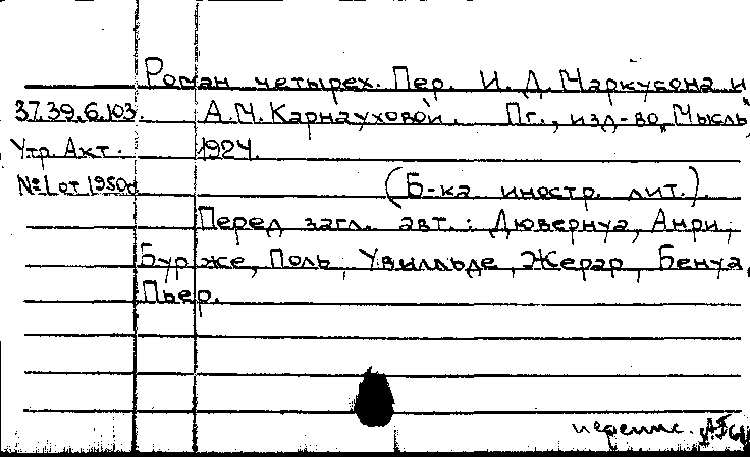 Роман четырех. Пер. И. Д. Маркусона и
37.39.6.103. А. М. Карнауховой. Пг., изд-во, Мысль,
Утр. Акт. 1924.
№1 от 1950г. (Б-ка иностр. лит.).
Перед загл. авт.: Дювернуа, Анри,
Бурже, Поль, Увилльде, Жерар, Бенуа,
Пьер.
перепис.